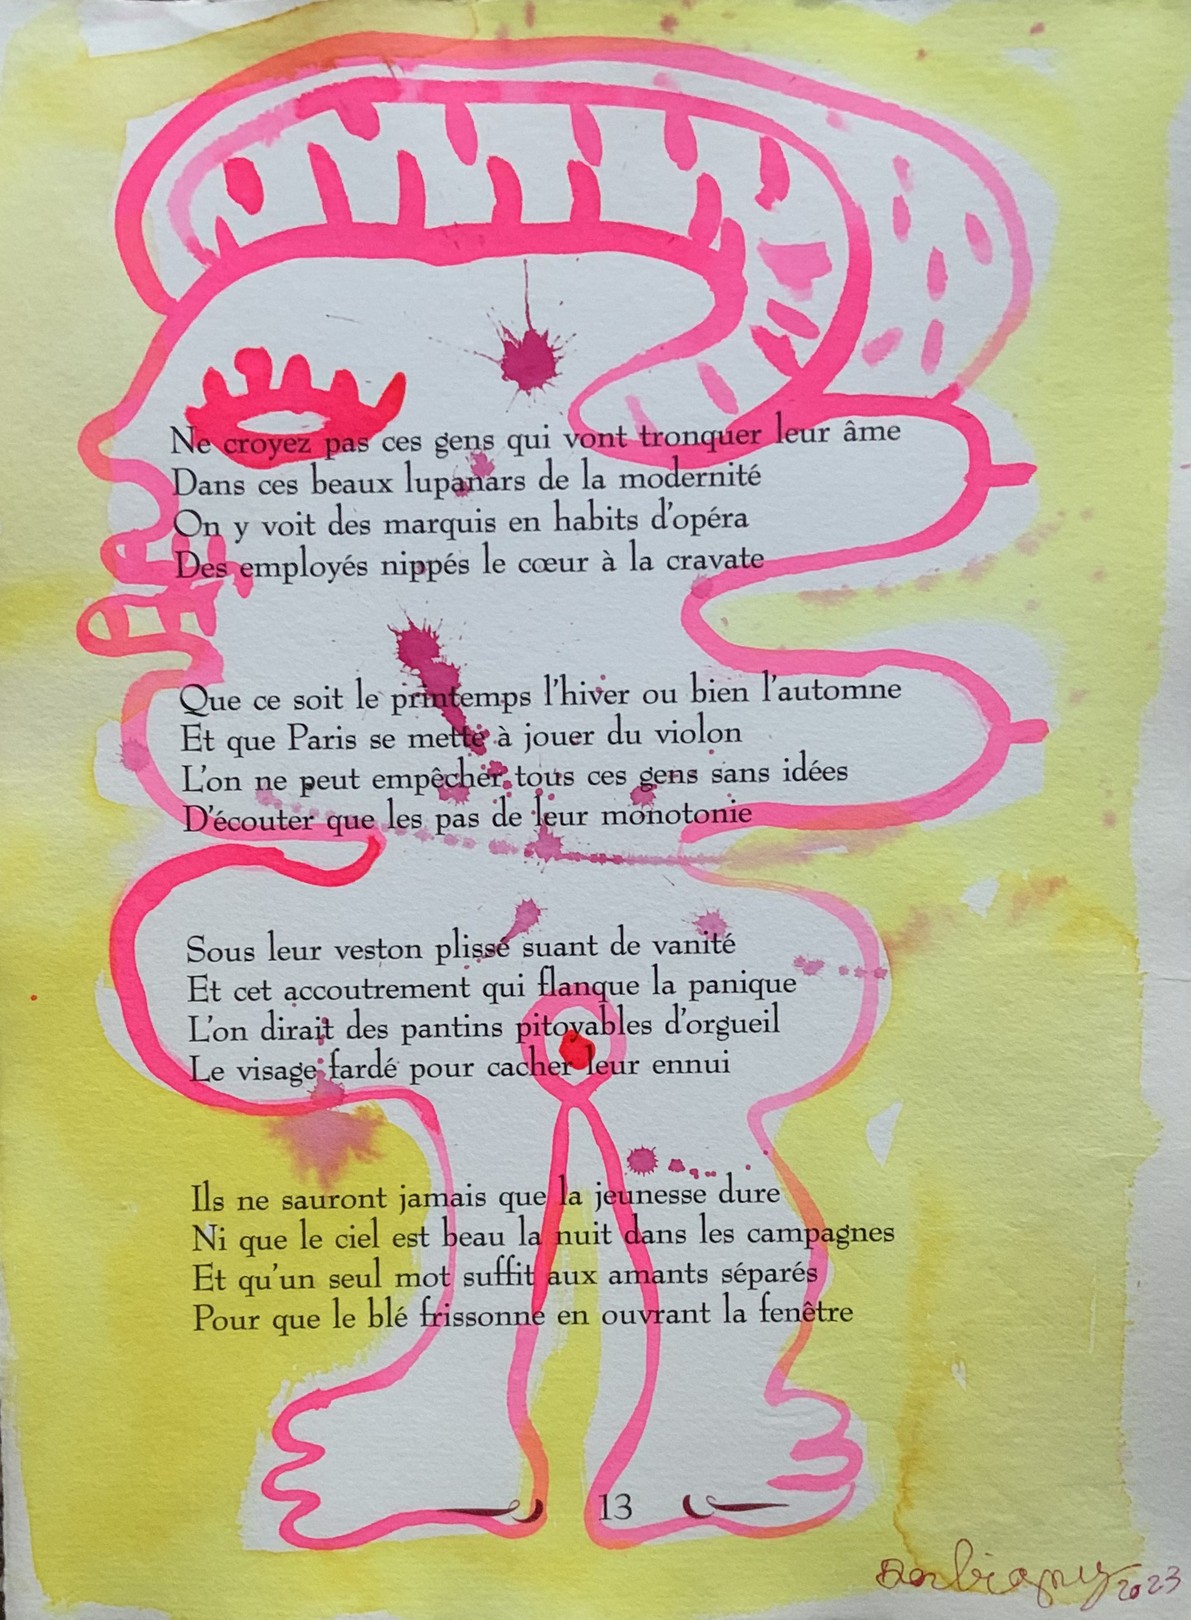 Ne croyez pas ces gens qui vont tronquer leur âme
Dans ces beaux lupanars de la modernité
On y voit des marquis en habits d'opéra
Des employés nippés le cœur à la cravate
Que ce soit le printemps l'hiver ou bien l'automne
Et que Paris se mette à jouer du violon
L'on ne peut empêcher tous ces gens sans idées
D'écouter que les pas de leur monotonie
Sous leur veston plissé suant de vanité
Et cet accoutrement qui flanque la panique
L'on dirait des pantins pitoyables d'orgueil
Le visage fardé pour cacher leur ennui
Ils ne sauront jamais que la jeunesse dure
Ni que le ciel est beau la nuit dans les campagnes
Et qu'un seul mot suffit aux amants séparés
Pour que le blé frissonne en ouvrant la fenêtre
13
2023